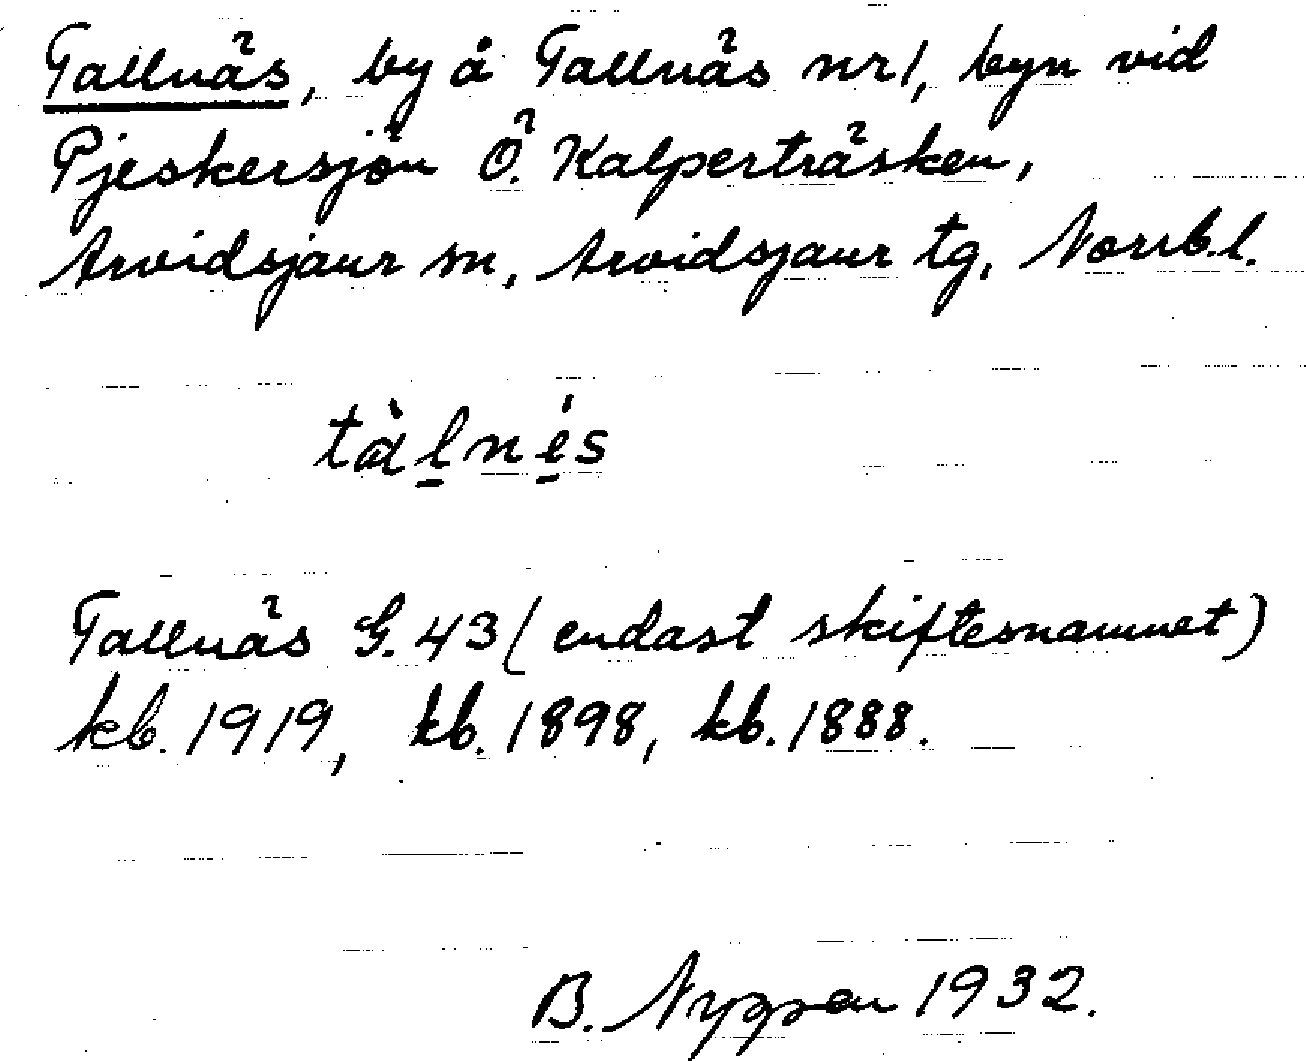 Tallnäs, by å Tallnäs nr 1, byn vid
Pjeskersjön Ö. Kalperträsken,
Arvidsjaur sn, Arvidsjaur tg, Norrb.l.
tàl̲né̲s
Tallnäs G. 43 (endast skiftesnamnet)
kb. 1919, kb. 1898, kb. 1888.
B. Nygren 1932.